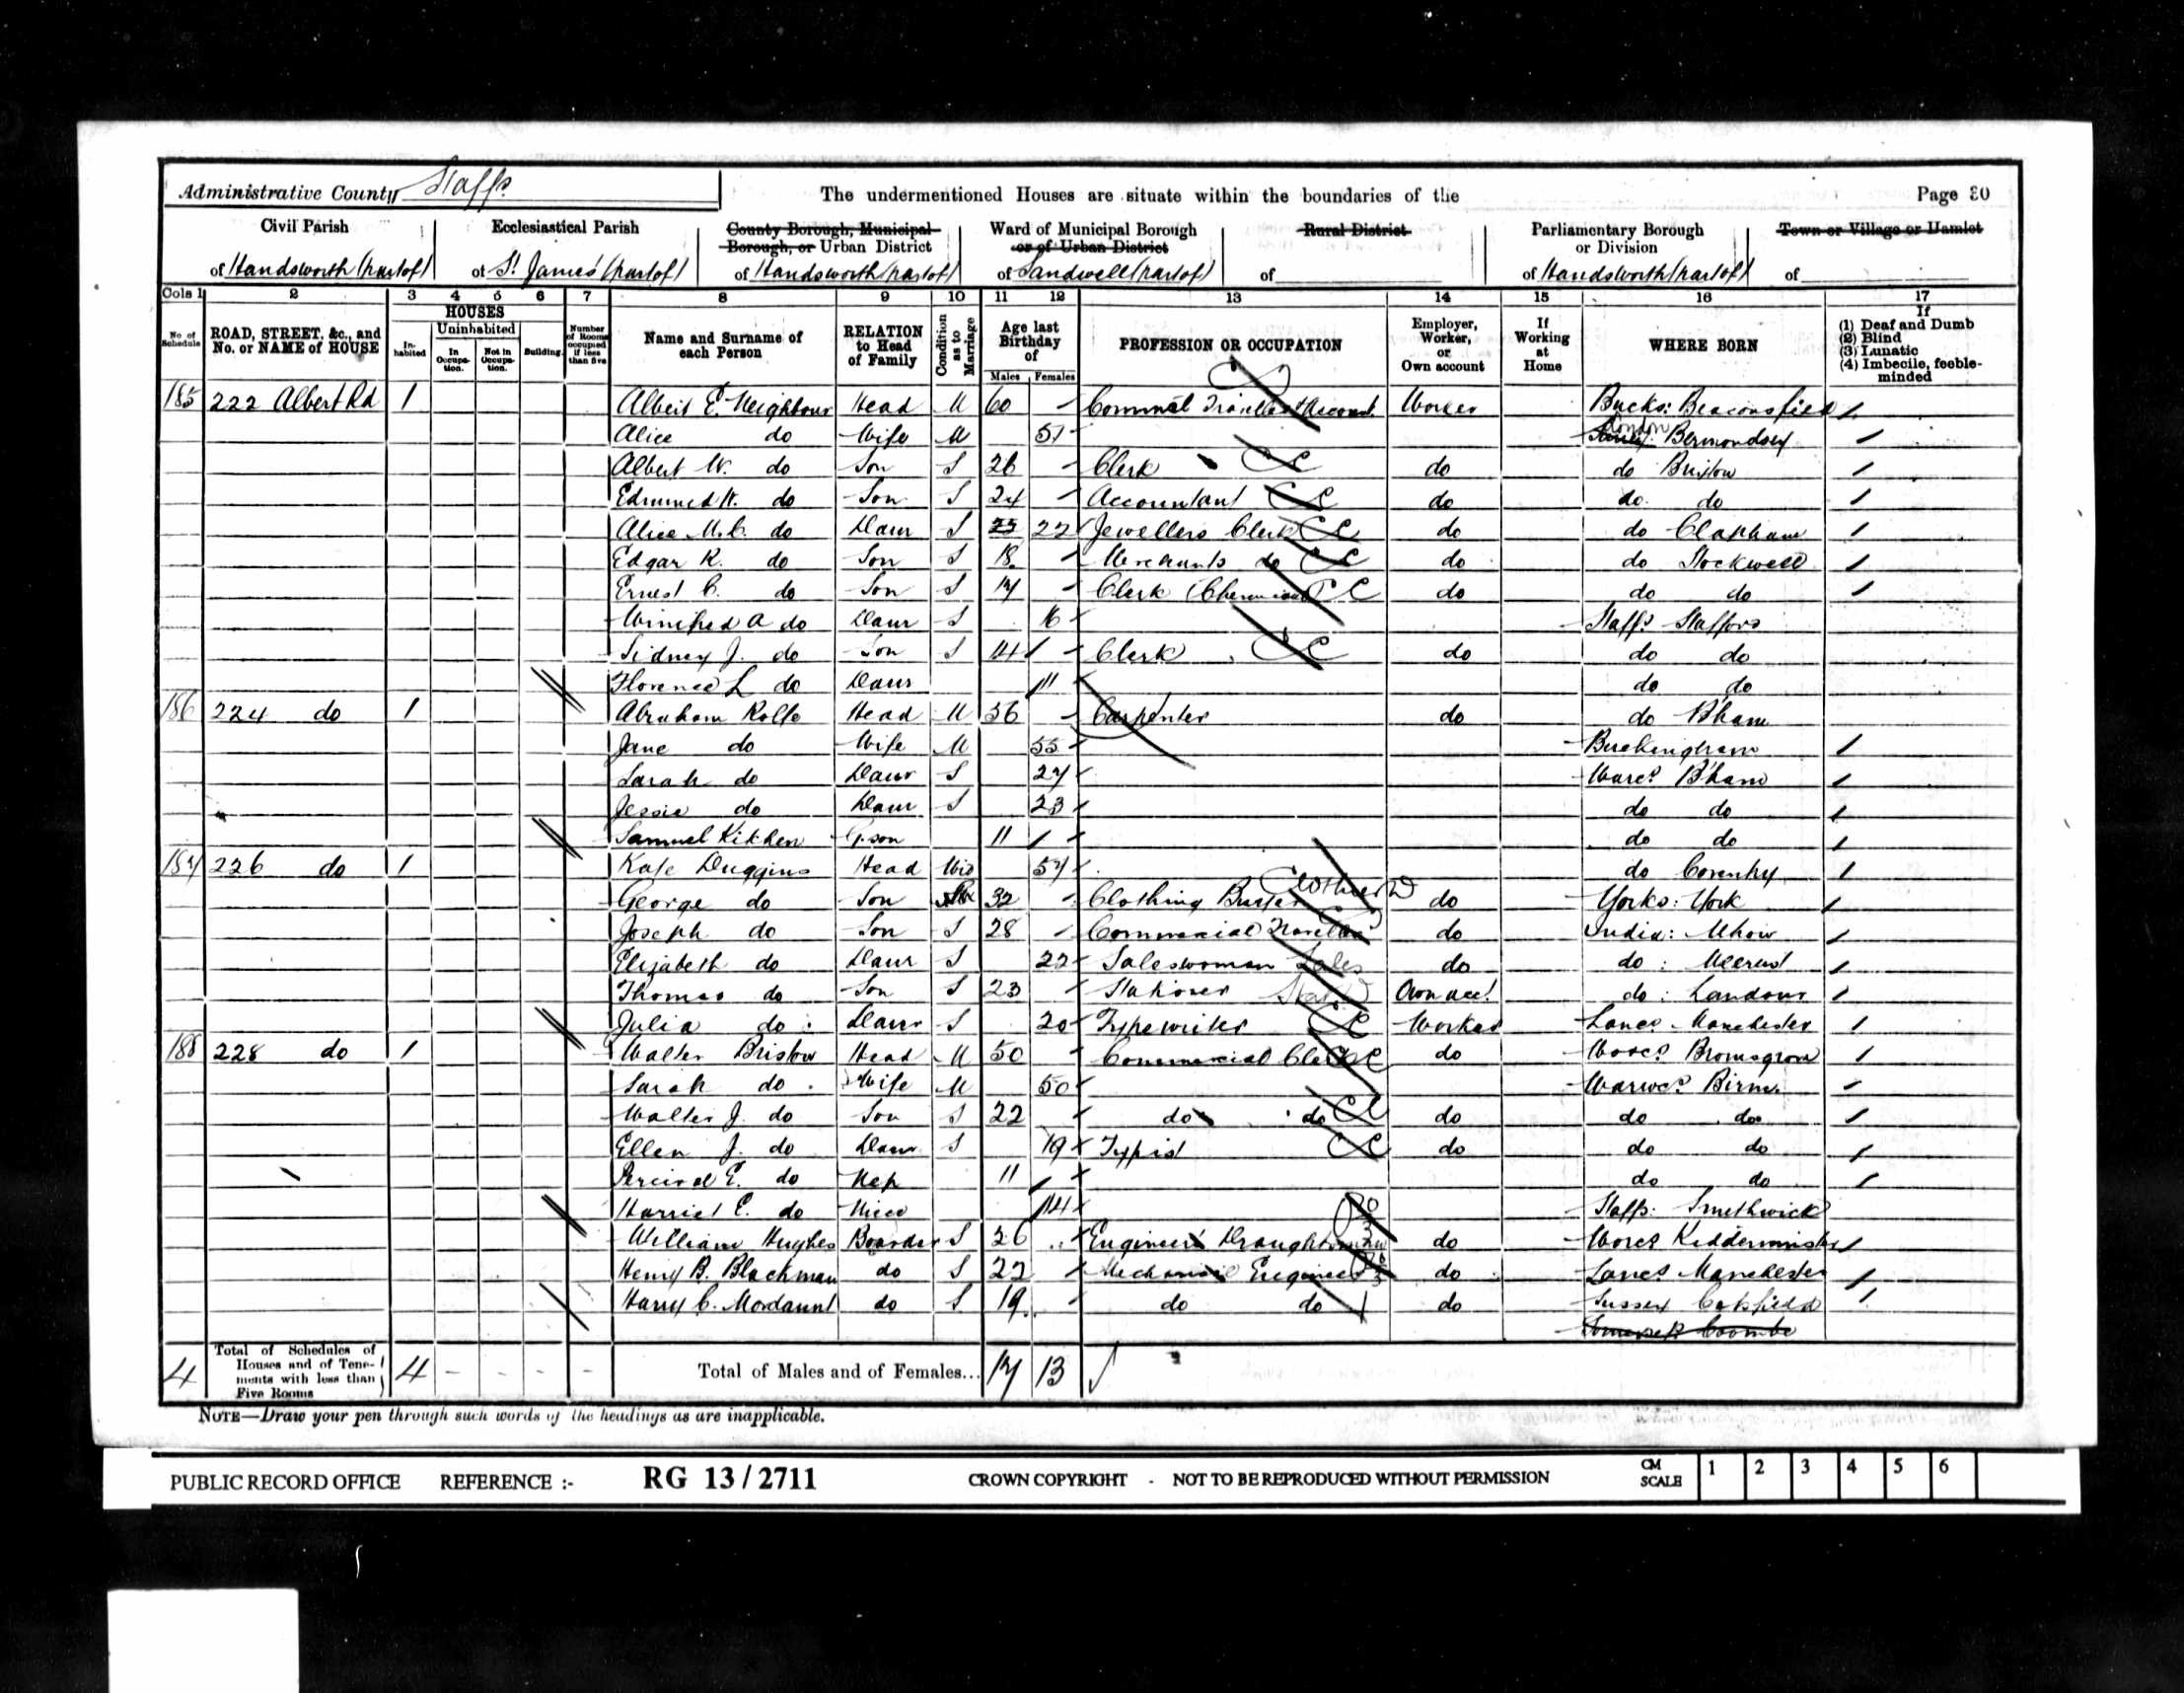 Administrative County Staffs
The undermentioned Houses are situate within the boundaries of the
Page 30
Civil Parish
of Handsworth (part of)
Ecclesiastical Parish
of St. James' (part of)
County Borough, Municipal
Borough, or Urban District
of Handsworth (part of)
Ward of Municipal Borough
or of Urban District
of Sandwell (part of)
Rural District
of
Parliamentary Borough
or Division
of Handsworth (part of)
Town or Village or Hamlet
of
Cols 1 2 3 4 5 6 7 8 9 10 11 12 13 14 15 16 17
No. of Schedule
ROAD, STREET, &c., and No. or NAME of HOUSE
HOUSES
In-habited
Uninhabited
In Occupa-tion.
Not in Occupa-tion.
Building.
Number of Rooms occupied if less than five
Name and Surname of each Person
RELATION to Head of Family
Condition as to Marriage
Age last Birthday of
Males Females
PROFESSION OR OCCUPATION
Employer, Worker, or Own account
If Working at Home
WHERE BORN
If
(1) Deaf and Dumb
(2) Blind
(3) Lunatic
(4) Imbecile, feeble-minded
185 222 Albert Rd 1 Albert E. Neighbour Head M 60 Worker Bucks: Beaconsfield
Alice do Wife M 51 London Bermondsey
Albert W. do Son S 26 Clerk do do Brixton
Edmund H. do Son S 24 Accountant do do do
Alice M. C. do Daur S 22 Jewellers Clerk do do Clapham
Edgar R. do Son S 18 Merchants do do do Stockwell
Ernest C. do Son S 17 Clerk do do do
Winifred A do Daur S 16 Staffs Stafford
Sidney J. do Son S 14 Clerk do do do
Florence L do Daur 11 do do
186 224 do 1 Abraham Rolfe Head M 56 Carpenter do do B'ham
Jane do Wife M 55 Buckingham
Sarah do Daur S 27 Warcs B'ham
Jessie do Daur S 23 do do
Samuel Kitchen G.son 11 do do
187 226 do 1 Kate Duggins Head Wid 57 do Coventry
George do Son 32 Clothing do Yorks: York
Joseph do Son S 28 Commercial Traveller do India: Mhow
Elizabeth do Daur S 22 Saleswoman Sales do do : Meerut
Thomas do Son S 23 Stationer Own acct do : Landour
Julia do Daur S 20 Typewriter Worker Lancs Manchester
188 228 do 1 Walter Bristow Head M 50 Commercial Clerk do Worcs Bromsgrove
Sarah do Wife M 50 Warwcs Birm.
Walter J. do Son S 22 do do do do do
Ellen J. do Daur S 19 Typist do do do
Percival E. do Nep 11 do do
Harriet E. do Niece 14 Staffs. Smethwick
William Hughes Boarder S 26 Engineers Draughtsman do Worcs Kidderminster
Henry B. Blackman do S 22 Mechanical Engineer do Lancs Manchester
Harry C. Mordaunt do S 19 do do do Sussex Catsfield
Somerset Coombe
4 Total of Schedules of Houses and of Tene-ments with less than Five Rooms 4 - - - - Total of Males and of Females... 17 13
NOTE—Draw your pen through such words of the headings as are inapplicable.
PUBLIC RECORD OFFICE REFERENCE :- RG 13/2711 CROWN COPYRIGHT - NOT TO BE REPRODUCED WITHOUT PERMISSION CM SCALE 1 2 3 4 5 6